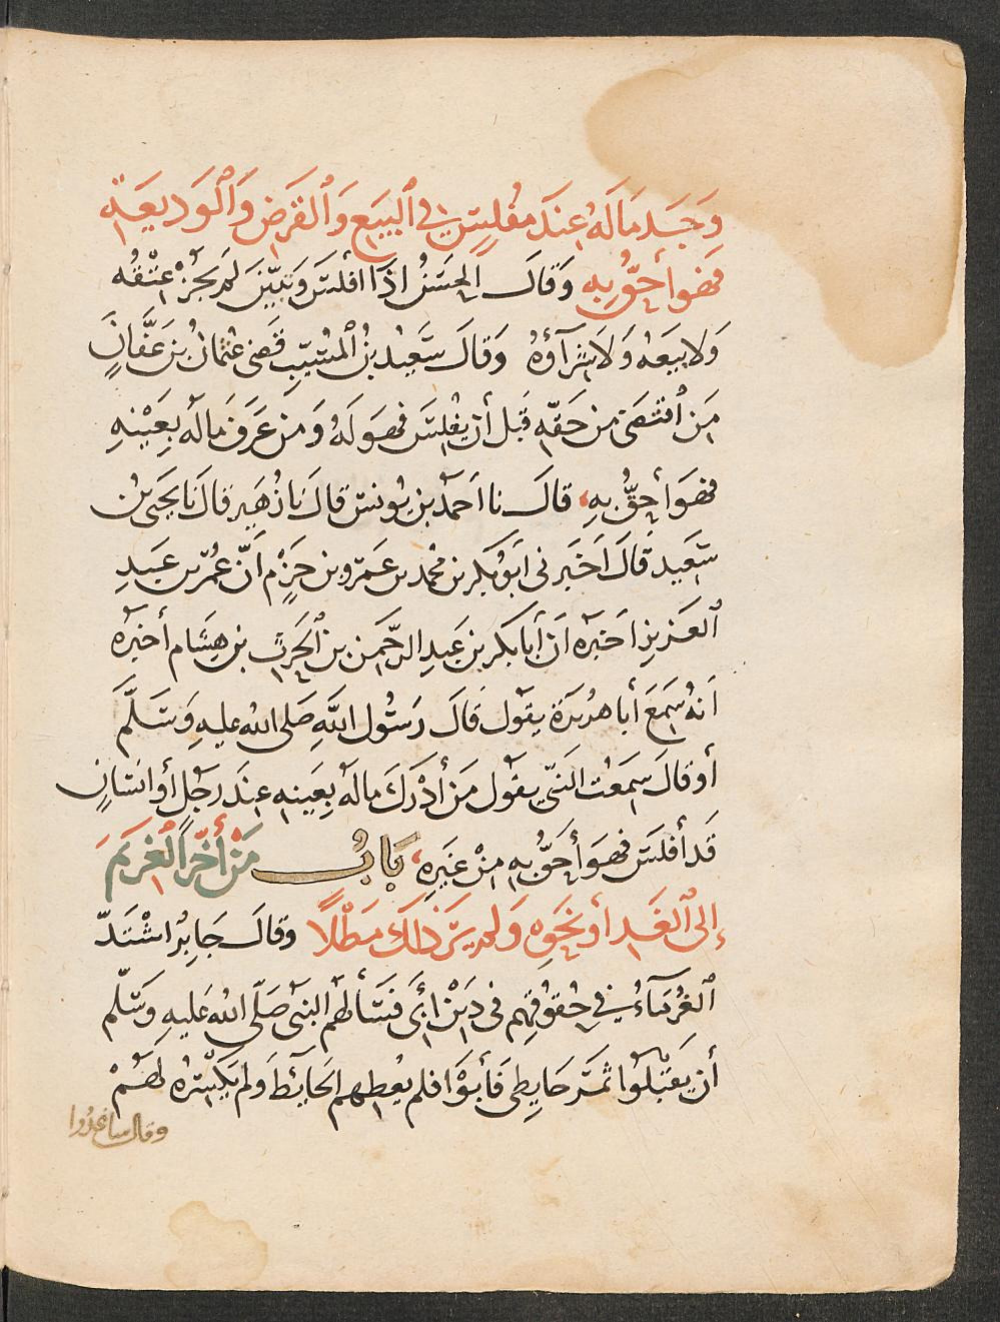 وَجَدَ مَالَهُ عِندَ مفْلِسٍ فِي ٱلْبَيَع وَٱلْقَرَضِ وَٱلْوَدِيعَةِ
فَهوَ أَحَقُّ بِهِ وَقَالَ الحَسَنُ اذَا افْلَسَ وَتَبَيَّنَ لمَ يَجُزْ عِتْقُه
وَلا بيَعهُ وَلَا شِرَآؤهُ وَقالَ سَعِيد بنُ ٱلْمُسَيّبِ قَضى عثمانُ بن عَفَّانَ
مَن ٱقْتَضَى من حَقّهِ قَبل أن يفْلسَ فهوَ لَهُ وَمن عَرَفَ مَاله بِعَيْنهِ
فهوَ أحَقُّ بِهِ، قالَ نا احَمدُ بن يُونسَ قالَ نَا زُهَير قالَ نا يَحَيى بنُ
سَعَيد قَالَ اَخَبَرنى ابَو بَكر بن محمد بن عَمَرو بن حَزِم اَنَّ عُمَر بن عَبدِ
ٱلْعَزيزِ اخَبَره اَن أبا بكر بن عَبدِ الرَّحَمن بن ٱلْحَرثِ بن هِشَام أخبَره
اَنهُ سَمِعَ أبا هرُيرَة يقَول قَالَ رَسُول اللَّهِ صَلى الله عليهِ وَسَلَّمَ
أو قالَ سمِعَت النَبّي يقول مَن أدْرَكَ مالَه بِعَينهِ عِندَ رجَل أو انسَانٍ
قَد أفلسَ فهوَ أحَقُّ بِهِ مِنْ غَيَرِهِ، بَابُ مَنْ أَخَّرَ ٱلْغَرِيَمَ
إلى ٱلْغَدِ أو نَحَوِهِ وَلم يَرَ ذلكَ مَطْلًا وقالَ جَابِرُ اشْتَدَّ
ٱلْغُرَمآءُ فِي حُقوُقِهِم فى دَيْنِ ابَى فسَأَلهَم النبى صَلّى اللهُ عَليهِ وَسَلّم
أن يَقَبَلُوا ثمَرَ حَايِطِى فَأَبَوْا فلم يعُطِهِم الحَائِطَ ولم يَكسِرهُ لهُمْ
وقال ساغدُوا